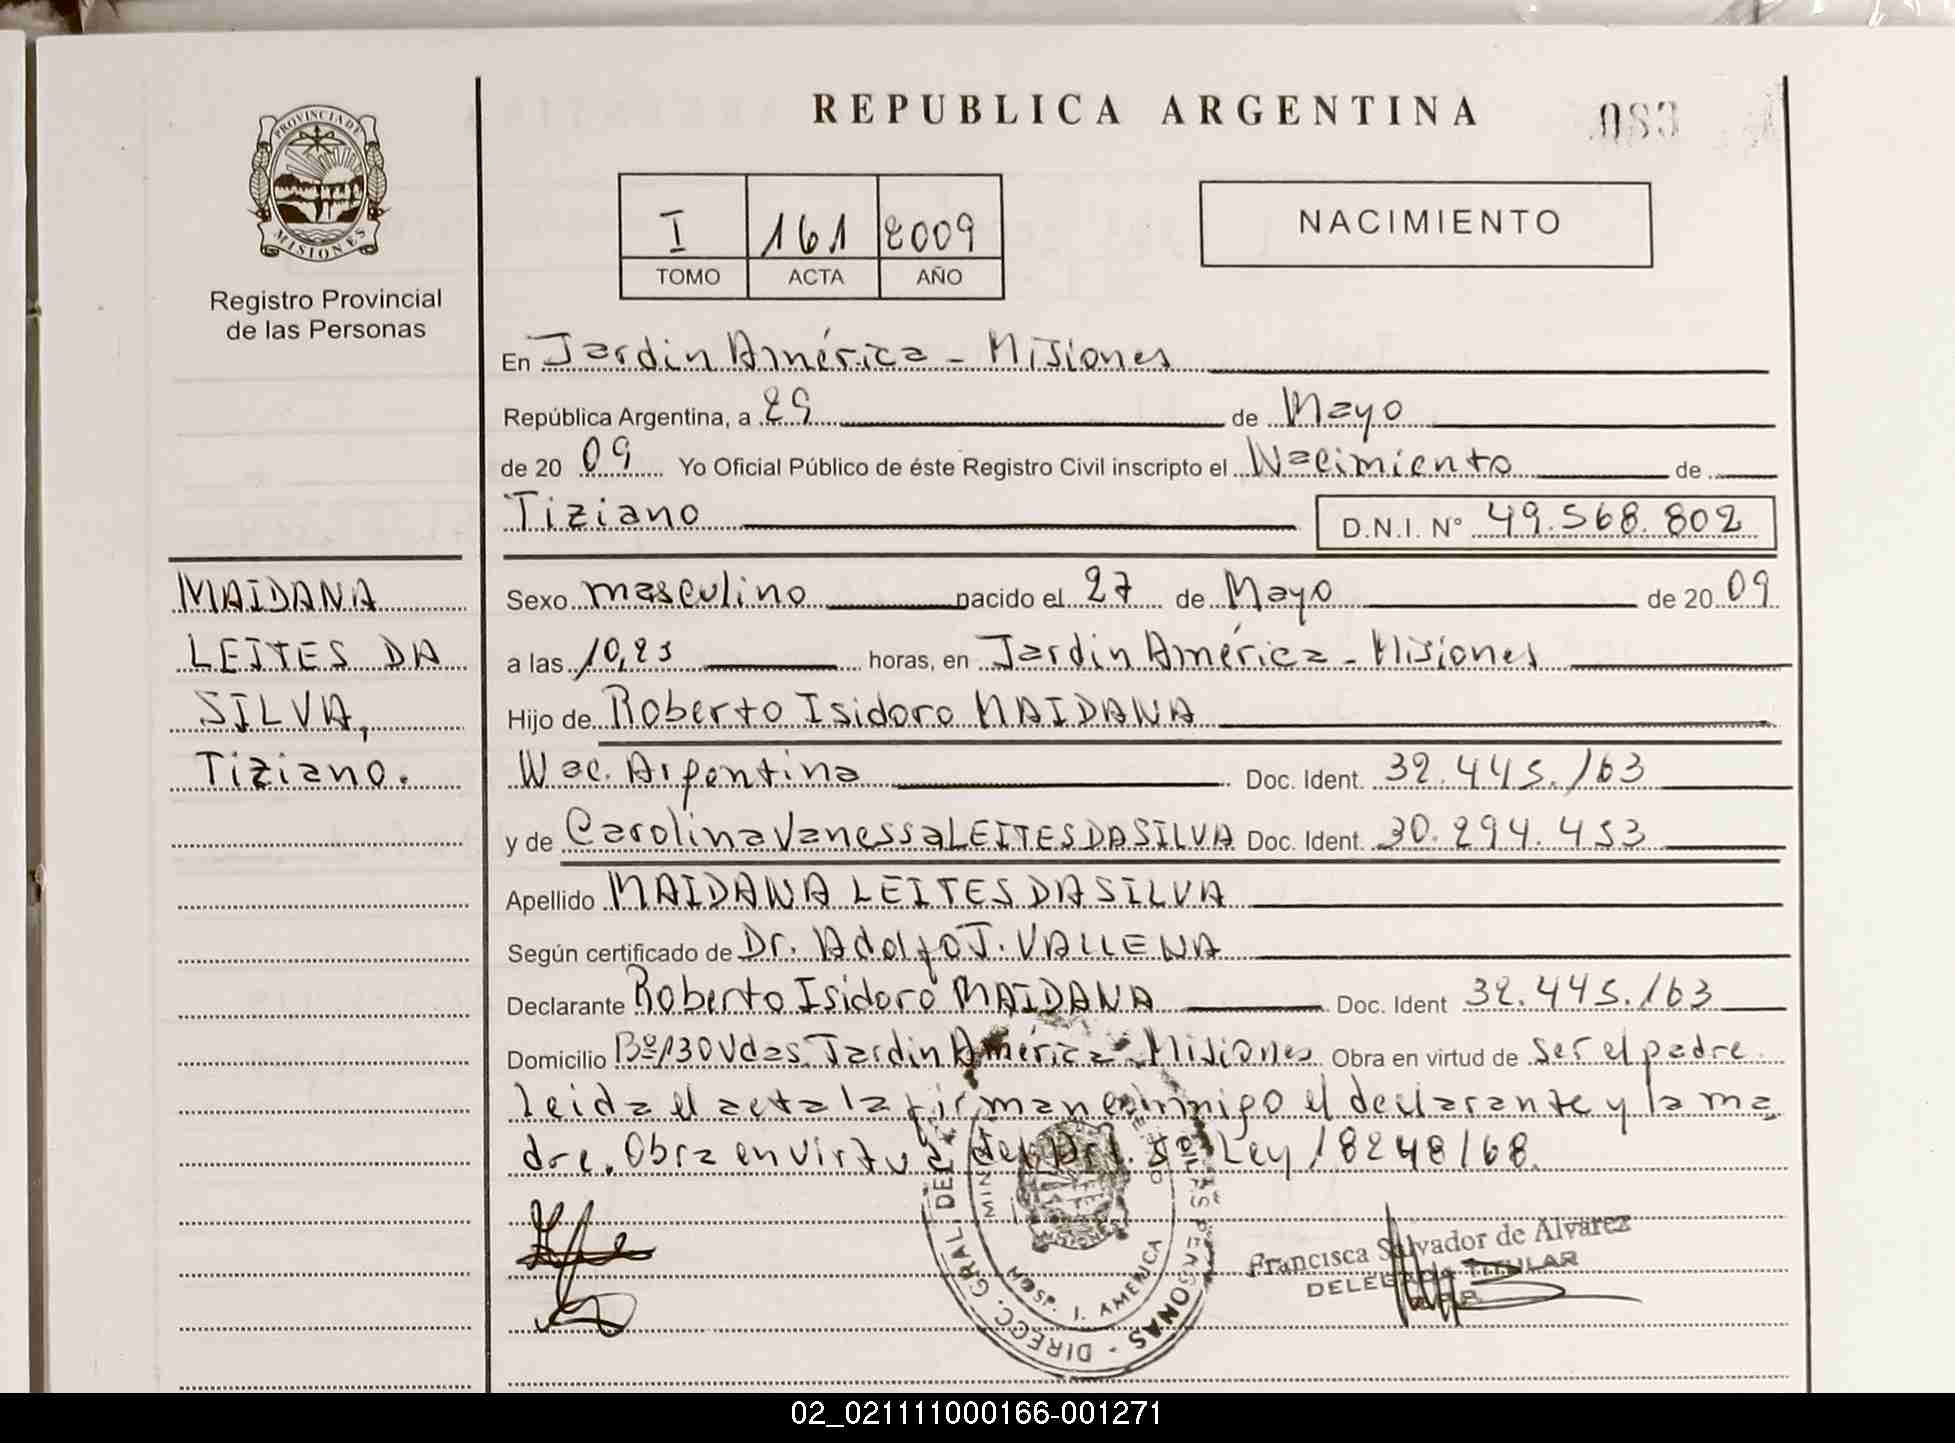 REPUBLICA ARGENTINA
083
PROVINCIA DE
MISIONES
Registro Provincial
de las Personas
I 161 2009
TOMO ACTA AÑO
NACIMIENTO
En Jardín América - Misiones
República Argentina, a 29 de Mayo
de 20 09 Yo Oficial Público de éste Registro Civil inscripto el Nacimiento de
Tiziano D.N.I. N° 49.568.802
MAIDANA
LEITES DA
SILVA,
Tiziano.
Sexo masculino nacido el 27 de Mayo de 20 09
a las 10,23 horas, en Jardín América - Misiones
Hijo de Roberto Isidoro MAIDANA
Nac. Argentina Doc. Ident. 32.445.163
y de Carolina Vanessa LEITES DA SILVA Doc. Ident. 30.294.453
Apellido MAIDANA LEITES DA SILVA
Según certificado de Dr. Adolfo J. VALLENA
Declarante Roberto Isidoro MAIDANA Doc. Ident 32.445.163
Domicilio Bº 130 Vdas. Jardín América - Misiones Obra en virtud de ser el padre
Leida el acta la firman conmigo el declarante y la ma
dre. Obra en virtud del Art. 5º Ley 18248/68.
DIRECC. GRAL. DEL
HOSP. J. AMERICA
Francisca Salvador de Alvarez
DELEGADA TITULAR
02_021111000166-001271